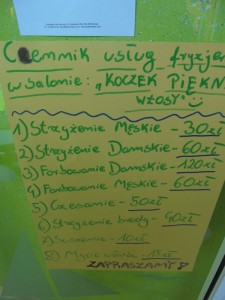 Cennik usług fryzjer
w salonie: „KOCZEK PIĘKN
WŁOSY"
1) Strzyżenie Męskie - 30zł
2) Strzyżenie Damskie - 60zł
3) Farbowanie Damskie - 120zł
4) Farbowanie Męskie - 60zł
5) Czesanie - 50zł
6) Strzyżenie brody - 40zł
7) - 10zł
8) Mycie - 15zł
ZAPRASZAMY!